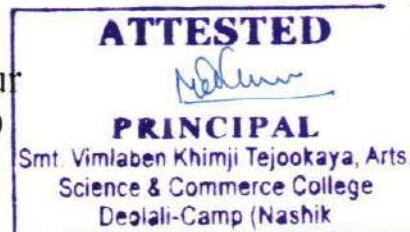 ATTESTED
ur
)
PRINCIPAL
Smt. Vimlaben Khimji Tejookaya, Arts,
Science & Commerce College
Deolali-Camp (Nashik